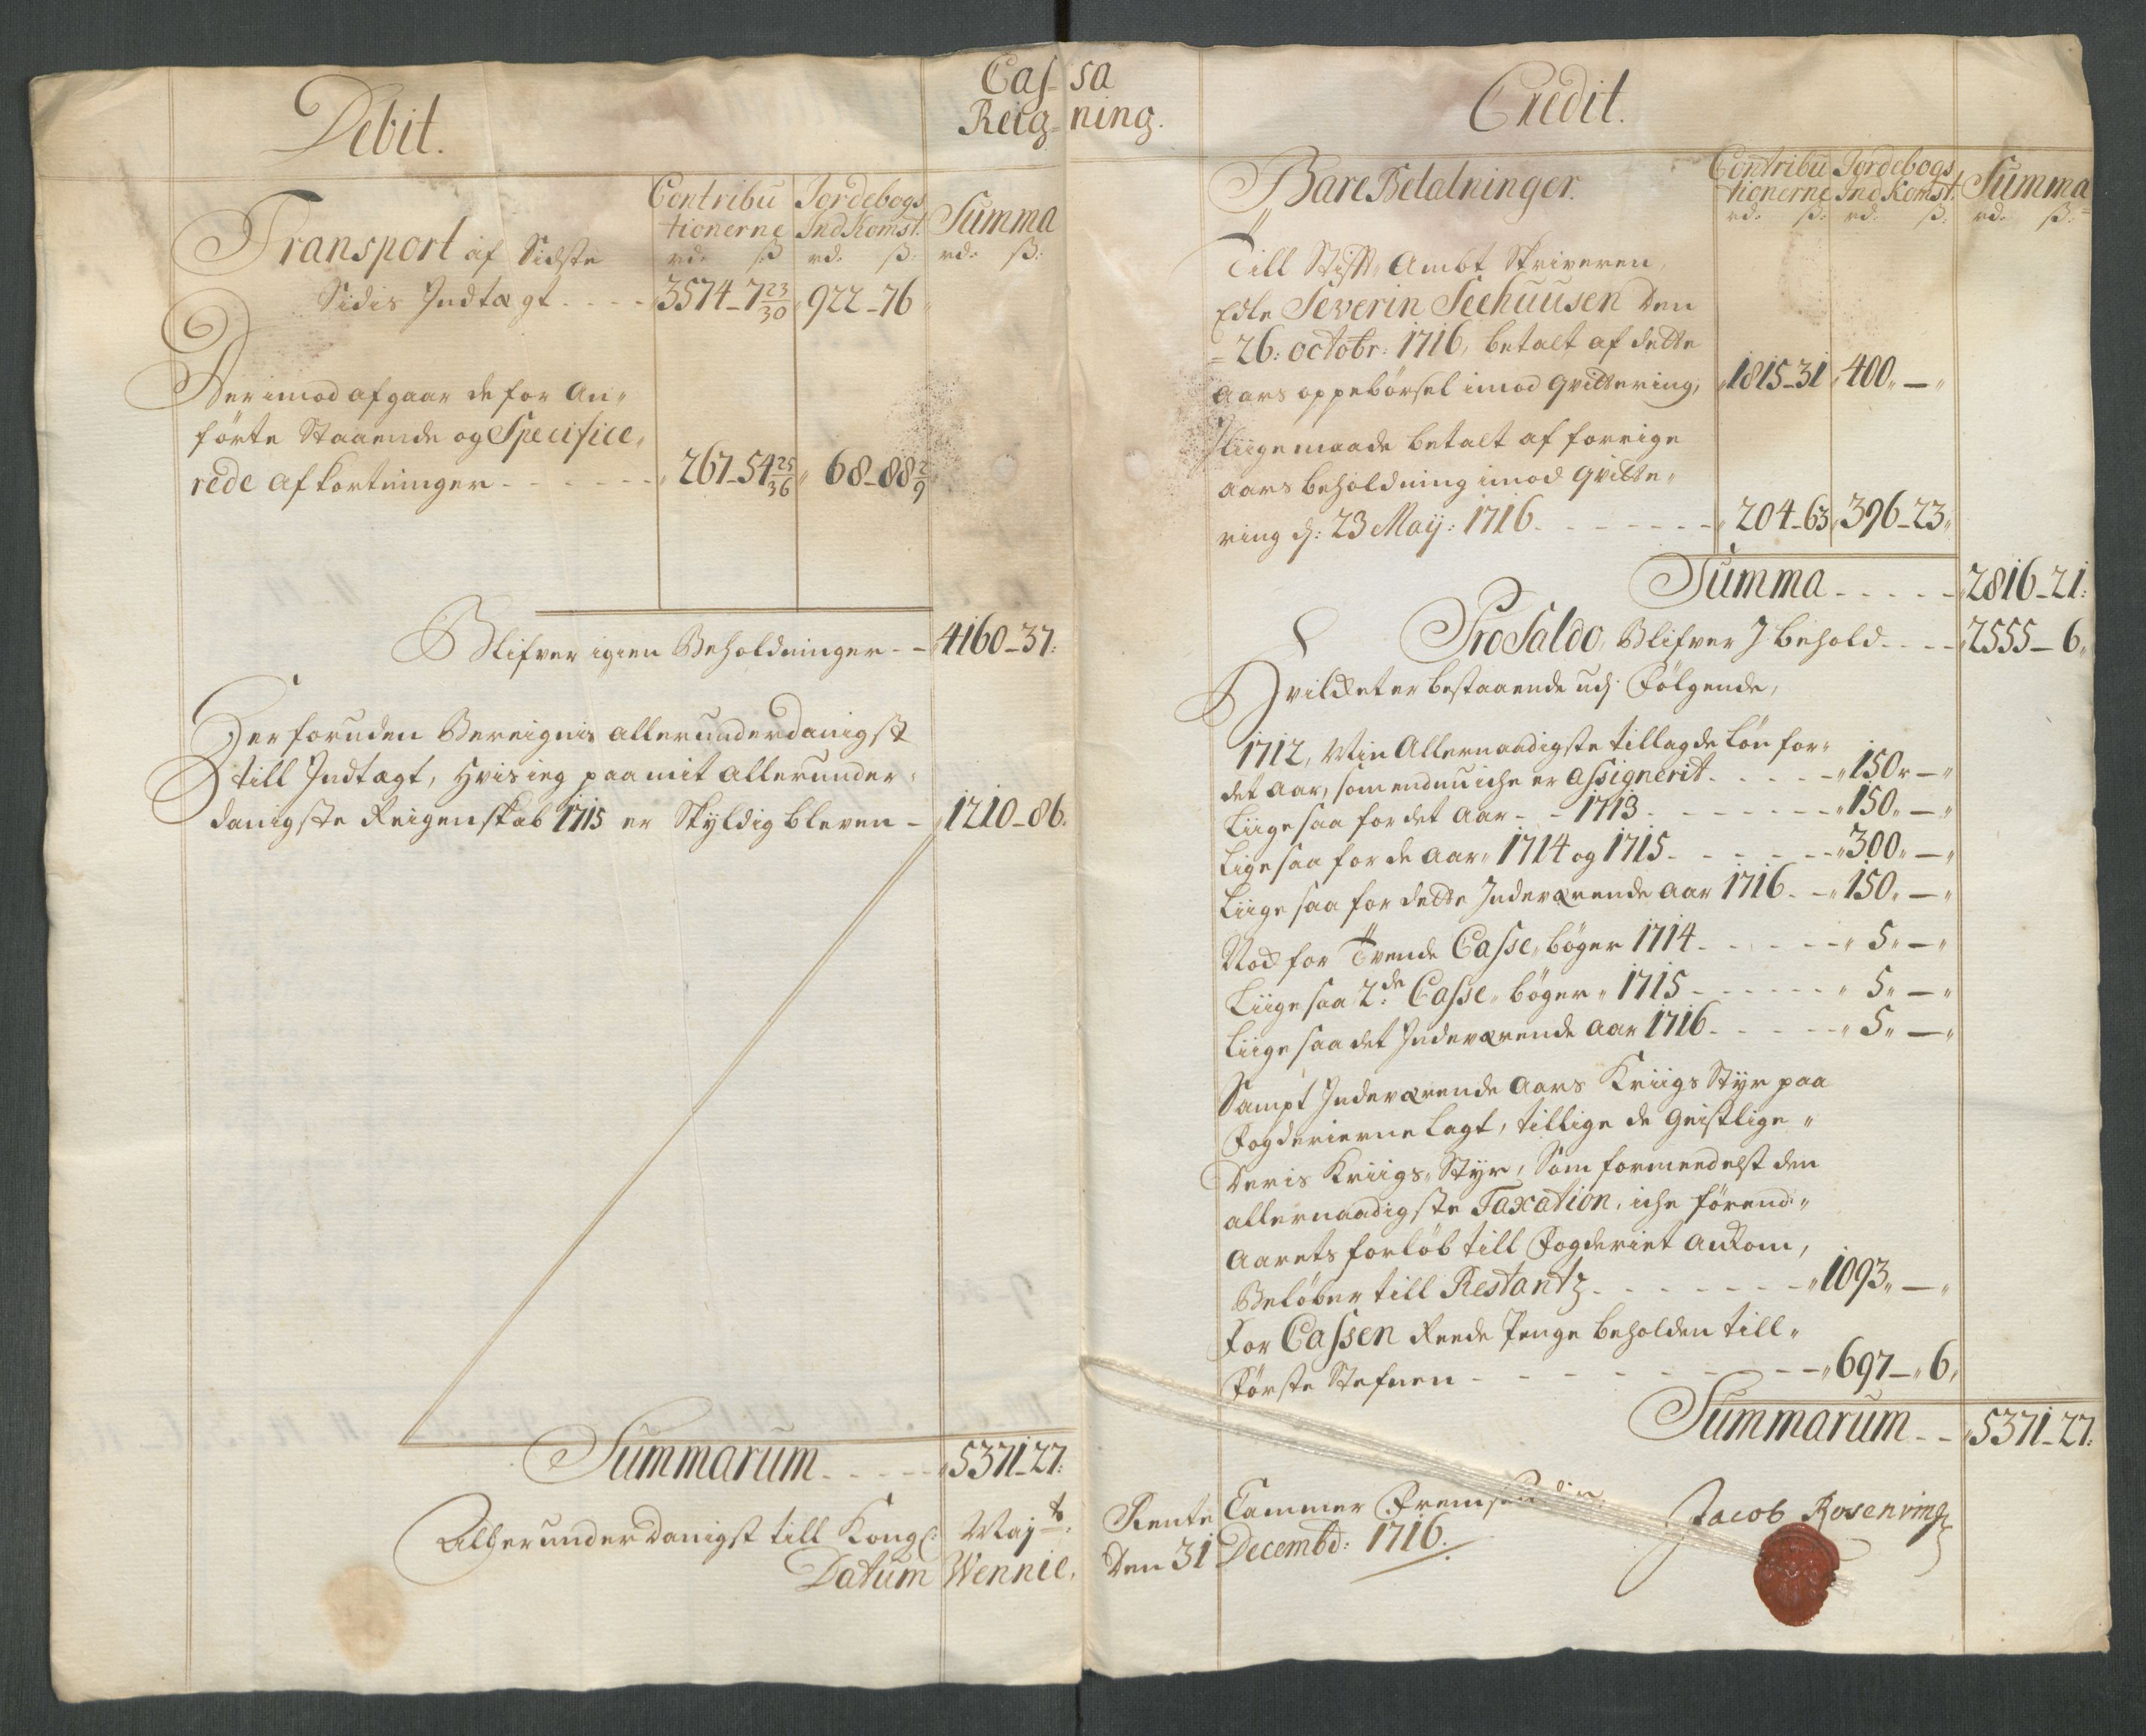 Cas- sa
Reig- ning.
Debit.
Contribu Jordebogs Summa
tionerne IndKomst.
rd. ß rd. ß: rd. ß:
Transport af Sidste
Sidis Indtægt - - - - 3574-7 23/30 922-76
Derimod afgaar de for An-
förte Staaende og Specifice-
rede afkortninger - - - - - - 267-54 25/36 68-88 2/9
Blifver igien Beholdninger - - 4160-37:
Her foruden Bereignis allerunderdanigst
till Indtægt, Hvis ieg paa mit allerunder-
danigste Reigenskab 1715 er Skyldig bleven - 1210-86.
Summarum - - - - - 5371-27:
Allerunderdanigst till Kongl: Mayts:
Datum Wennie,
Credit.
Bare Betalninger. Contribu Jordebogs Summa
tionerne IndKomst.
rd. ß: rd. ß: rd. ß:
Till Stift Ambt Skriveren,
Edle Severin Seehuusen Den
26: octobr: 1716, betalt af dette
aars oppebörsel imod qvittering, 1815-31 400 -
Iliigemaade betalt af forrige
aars beholdning imod qvitte-
ring d: 23 Maij: 1716 - - - - - - 204-63 396-23
Summa - - - - - 2816-21:
Pro Saldo, Blifver I behold - - - - 2555-6
Hvilket er bestaaende udj Fölgende,
1712, Min Allernaadigste tillagde Lön for-
det Aar, som endnu iche er assignerit - - - - - 150 -
Liigesaa for det Aar - - 1713 - - - - - - - 150 -
Ligesaa for de Aar 1714 og 1715 - - - - - - 300 -
Liige saa for dette Indeværende Aar 1716 - - 150 -
Nod for Tvende Casse-böger 1714 - - - - - 5 -
Liige saa 2de Casse-böger 1715 - - - - - - 5 -
Liige saa det Indeværende Aar 1716 - - - - - 5 -
Sampt Indeværende Aars Kriigs Styr paa
Fogderierne lagt, tillige de Geistlige
Deris Kriigs-Styr, Som formedelst den
allernaadigste Taxation, iche förend
Aarets forlöb till Fogderiet anKom,
Belöber till Restantz - - - - - - - 1093 -
For Cassen Reede Penge beholden till
Förste Stefnen - - - - - - - - 697-6
Summarum - - 5371-27:
Rente Cammer
Den 31 Decembd: 1716.
Jacob Rosenving